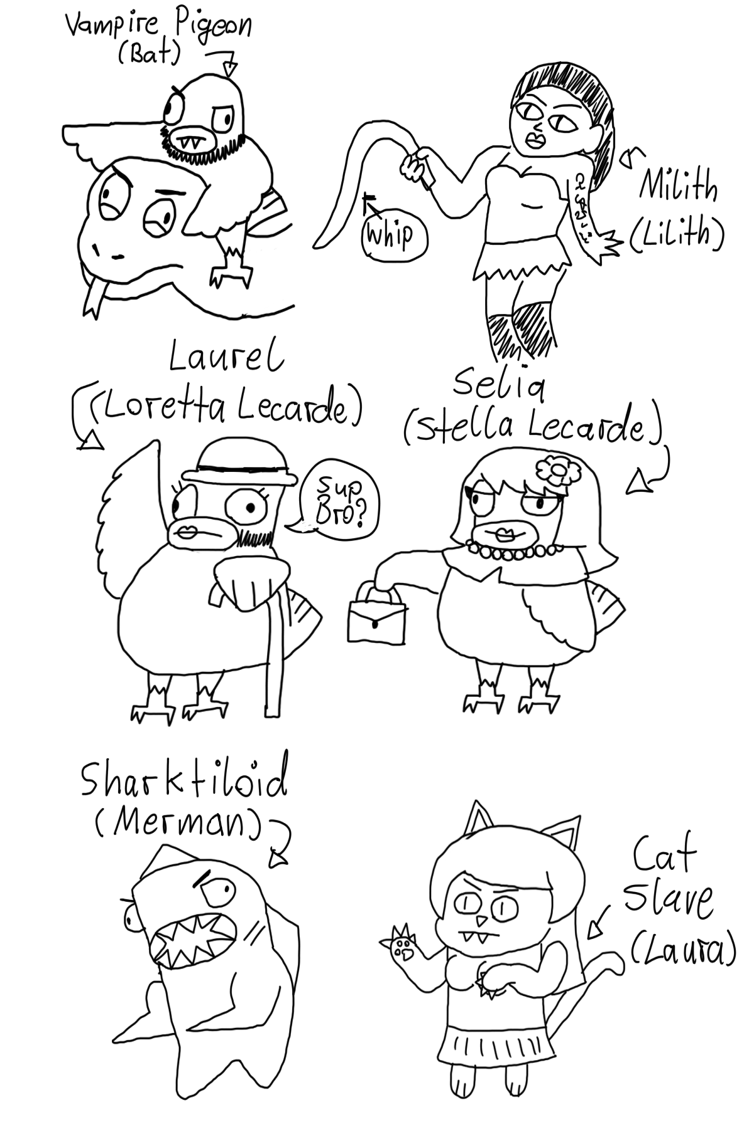 Vampire Pigeon
(Bat)
Milith
(Lilith)
Whip
Laurel
(Loretta Lecarde)
Selia
(Stella Lecarde)
Sup
Bro?
Sharktiloid
(Merman)
Cat
Slave
(Laura)